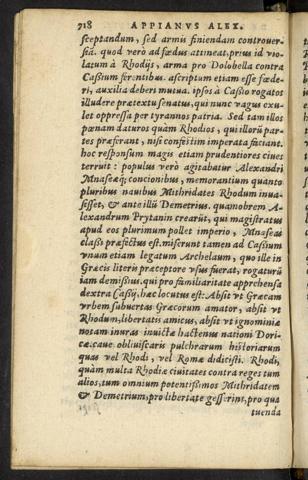 918 APPIANVS ALEX.
sceptandum, sed armis finiendam controuer-
siā. quod verò ad fœdus attineat, prius id vio-
latum à Rhodijs, arma pro Dolobella contra
Cassium ferentibus. ascriptum etiam esse fœde-
ri, auxilia deberi mutua. ipsos à Cassio rogatos
illudere prætextu senatus, qui nunc vagus exu-
let oppressa per tyrannos patria. Sed tam illos
pœnam daturos quàm Rhodios, qui illorū par-
tes præferant, nisi confestim imperata faciant.
hoc responsum magis etiam prudentiores ciues
terruit: populus verò agitabatur Alexandri
Mnaseæq; concionibus, memorantium quanto
pluribus nauibus Mithridates Rhodum inua-
sisset, & ante illū Demetrius. quamobrem A-
lexandrum Prytanin crearūt, qui magistratus
apud eos plurimum pollet imperio, Mnaseas
classi præfectus est. miserunt tamen ad Cassium
vnum etiam legatum Archelaum, quo ille in
Græcis literis præceptore vsus fuerat, rogaturū
iam demissius. qui pro familiaritate apprehensa
dextra Cassij, hæc locutus est: Absit vt Græcam
vrbem subuertas Græcorum amator, absit vt
Rhodum, libertatis amicus, absit vt ignominiæ
notam inuras inuictæ hactenus nationi Dori-
cæ. caue obliuiscaris pulchrarum historiarum
quas vel Rhodi, vel Romæ didicisti. Rhodi,
quàm multa Rhodiæ ciuitates contra reges tum
alios, tum omnium potentissimos Mithridatem
& Demetrium, pro libertate gesserint, pro qua
tuenda